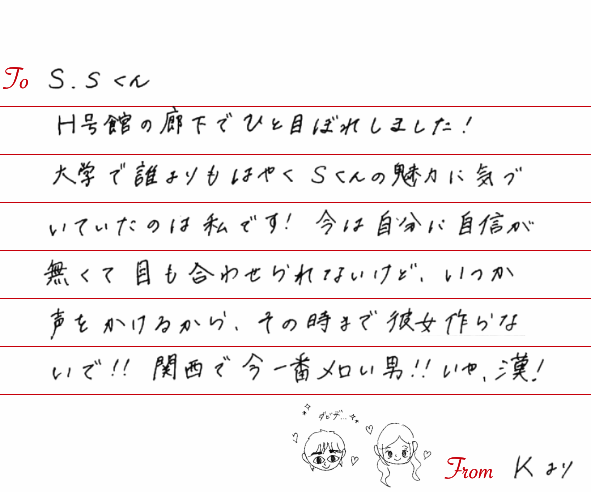 To S.Sくん
H号館の廊下でひと目ぼれしました!
大学で誰よりもはやくSくんの魅力に気づ
いていたのは私です! 今は自分に自信が
無くて目も合わせられないけど、いつか
声をかけるから、その時まで彼女作らな
いで!! 関西で今一番メロい男!! いや、漢!
ダビデ...
From Kより